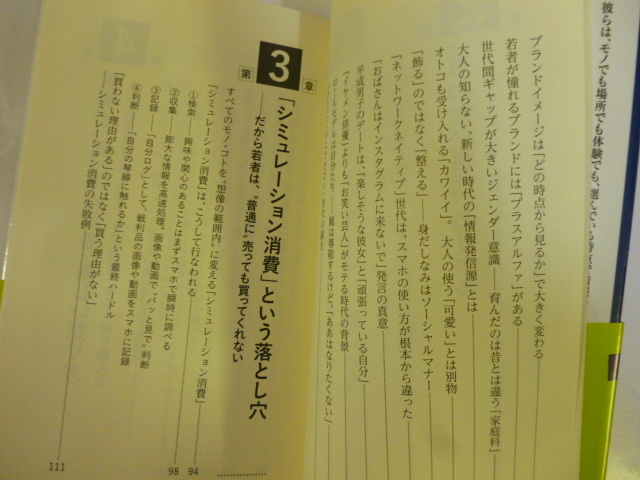 彼らは、モノでも場所でも体験でも、選んでいる時点
ブランドイメージは「どの時点から見るか」で大きく変わる
若者が憧れるブランドには「プラスアルファ」がある
世代間ギャップが大きいジェンダー意識——育んだのは昔とは違う「家庭科」
大人の知らない、新しい時代の「情報発信源」とは
オトコも受け入れる「カワイイ」。大人の使う「可愛い」とは別物
「飾る」のではなく「整える」——身だしなみはソーシャルマナー
「ネットワークネイティブ」世代は、スマホの使い方が根本から違った
「おばさんはインスタグラムに来ないで」発言の真意
平成男子のデートは、「楽しそうな彼女」と「頑張っている自分」
「イケメン俳優」よりも「お笑い芸人」がモテる時代の背景
ロールモデルは自分たち 親は尊敬するけど、「ああはなりたくない」
第3章
「シミュレーション消費」という落とし穴
——だから若者は、“普通に”売っても買ってくれない
すべてのモノ・コトを“想像の範囲内”に変える「シミュレーション消費」 94
「シミュレーション消費」は、こうして行なわれる 98
①検索——興味や関心のあることはまずスマホで瞬時に調べる
②収集——膨大な情報を高速処理。画像や動画で“パッと見で”判断
③記録——「自分ログ」として、戦利品の画像や動画をスマホに記録
④判断——「自分の琴線に触れるか」という最終ハードル
「買わない理由がある」のではなく「買う理由がない」
——シミュレーション消費の失敗例 111